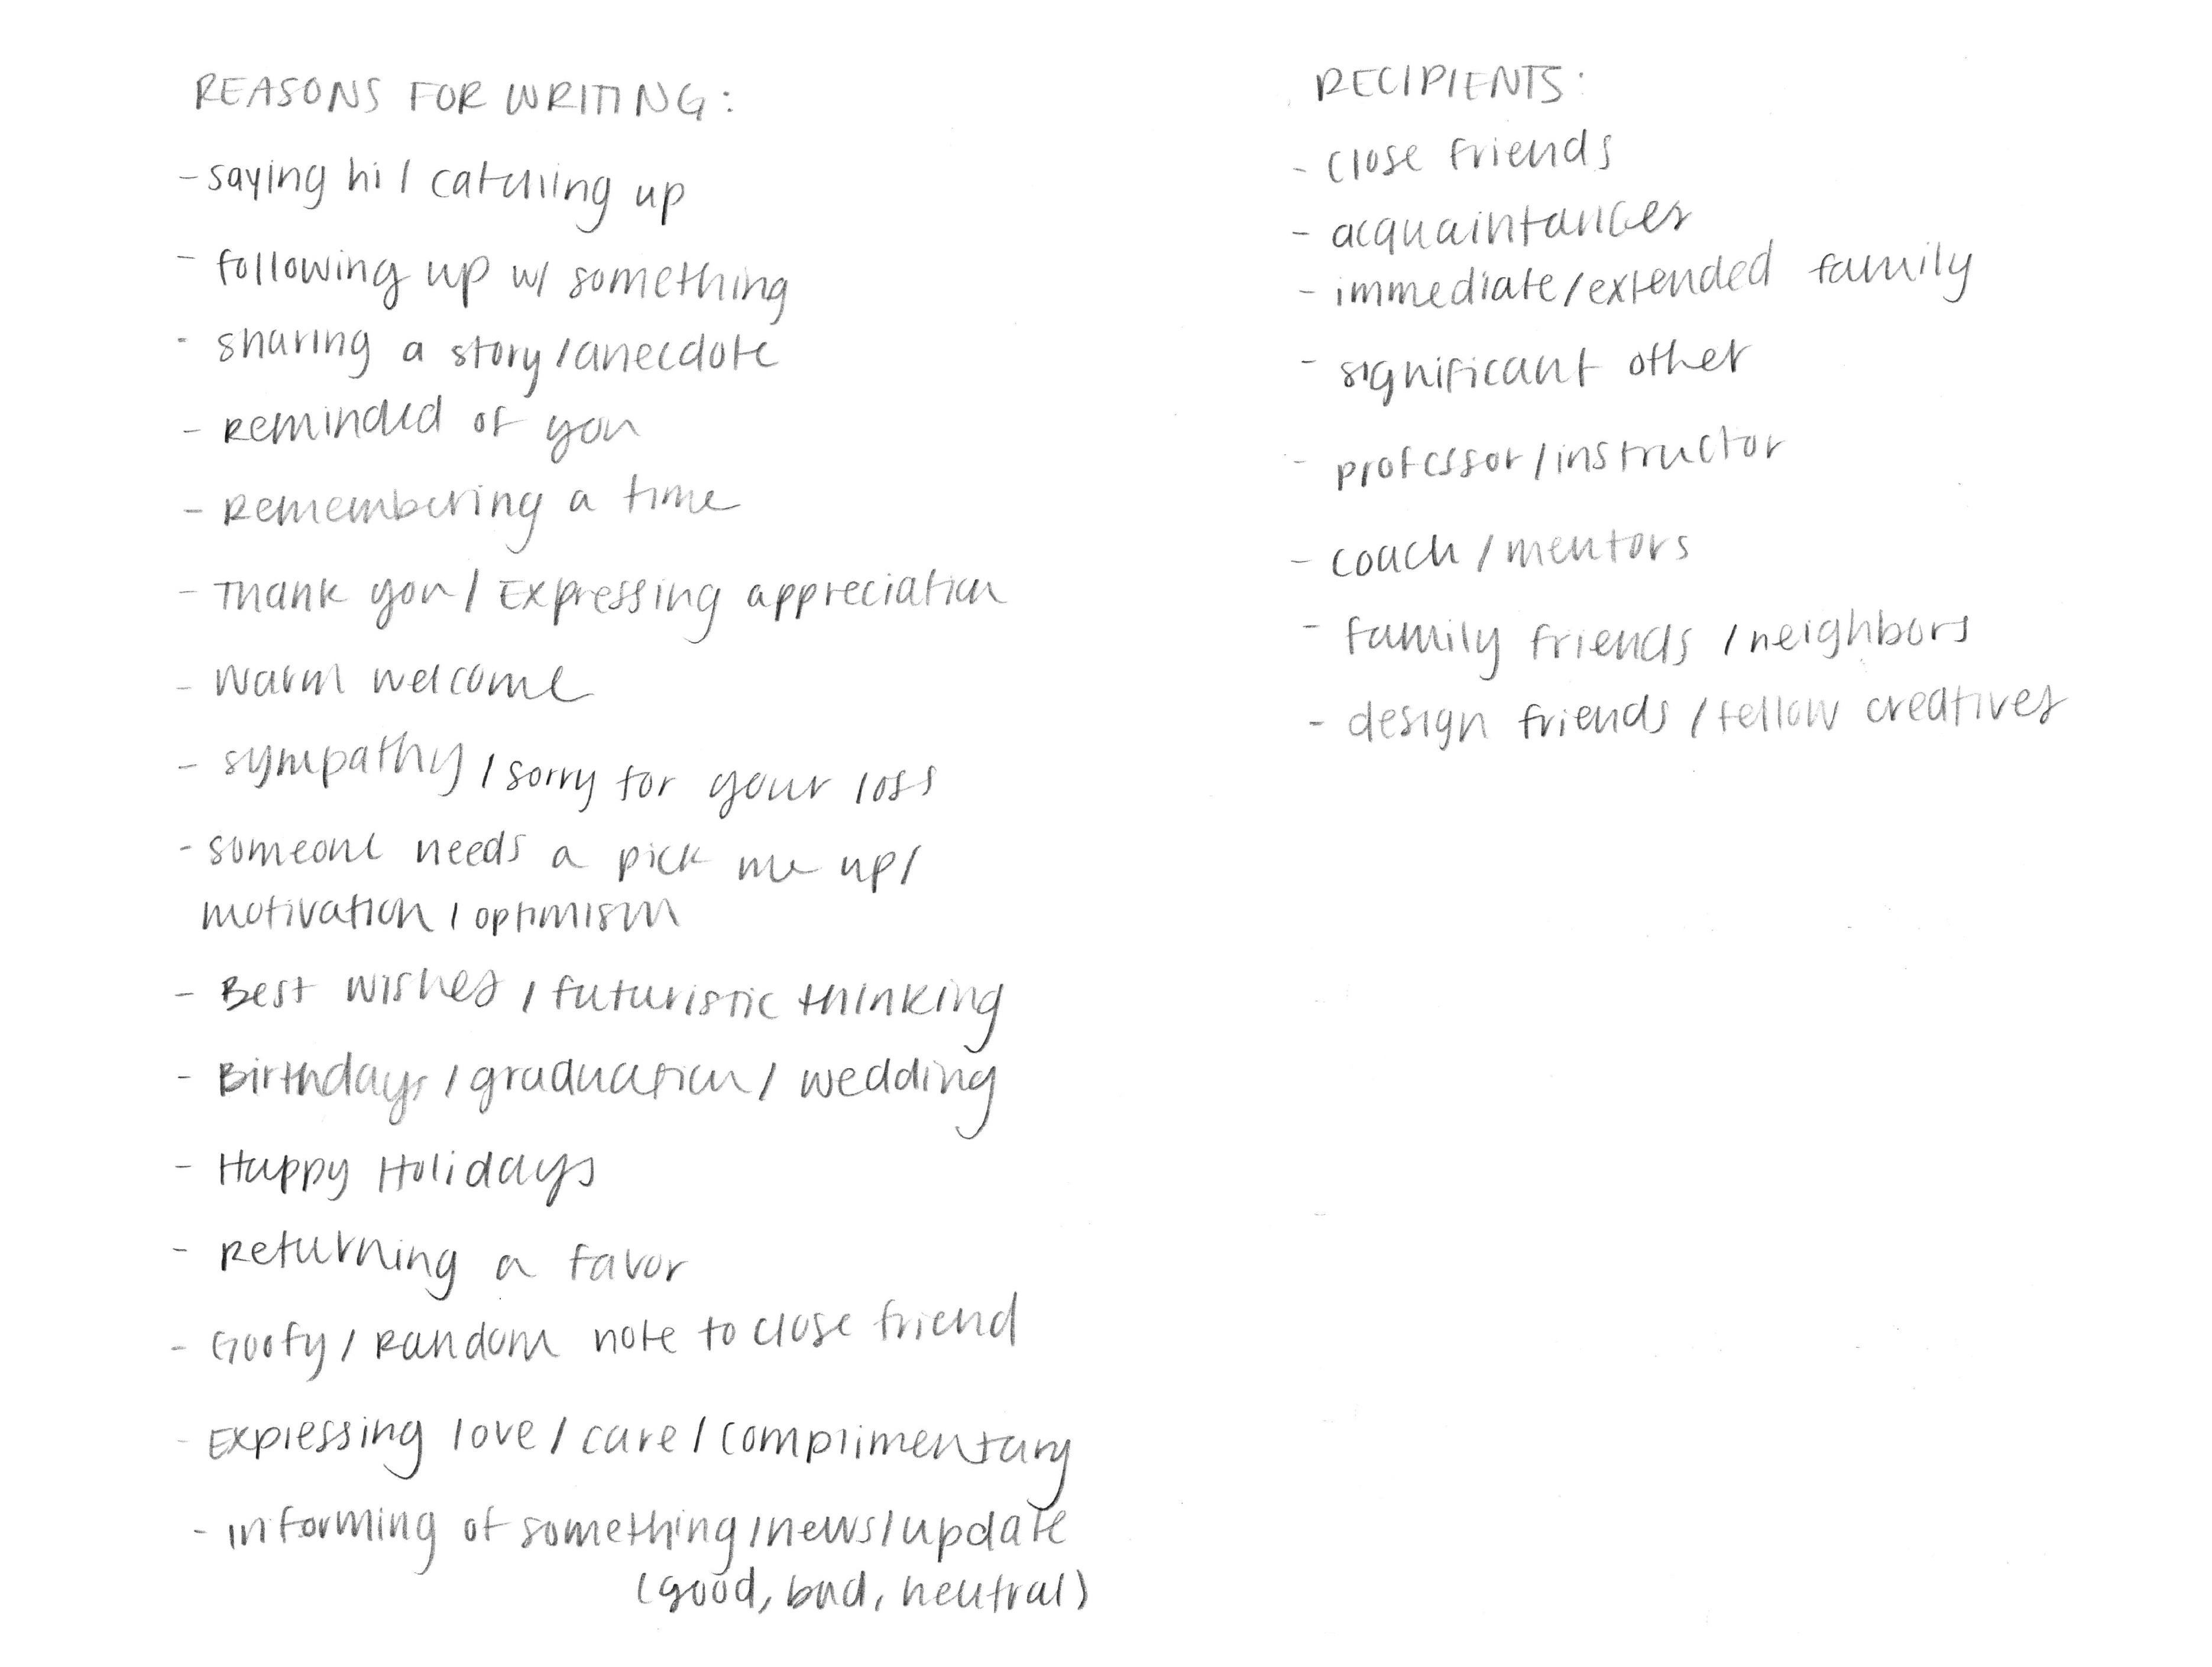 REASONS FOR WRITING:
- saying hi / catching up
- following up w/ something
- sharing a story/anecdote
- Reminded of you
- Remembering a time
- Thank you / Expressing appreciation
- Warm welcome
- sympathy / sorry for your loss
- someone needs a pick me up/
motivation / optimism
- Best wishes / futuristic thinking
- Birthdays / graduation / wedding
- Happy Holidays
- Returning a favor
- Goofy / Random note to close friend
- Expressing love / care / complimentary
- informing of something/news/update
(good, bad, neutral)
RECIPIENTS:
- close friends
- acquaintances
- immediate/extended family
- significant other
- professor/instructor
- coach / mentors
- family friends / neighbors
- design friends / fellow creatives